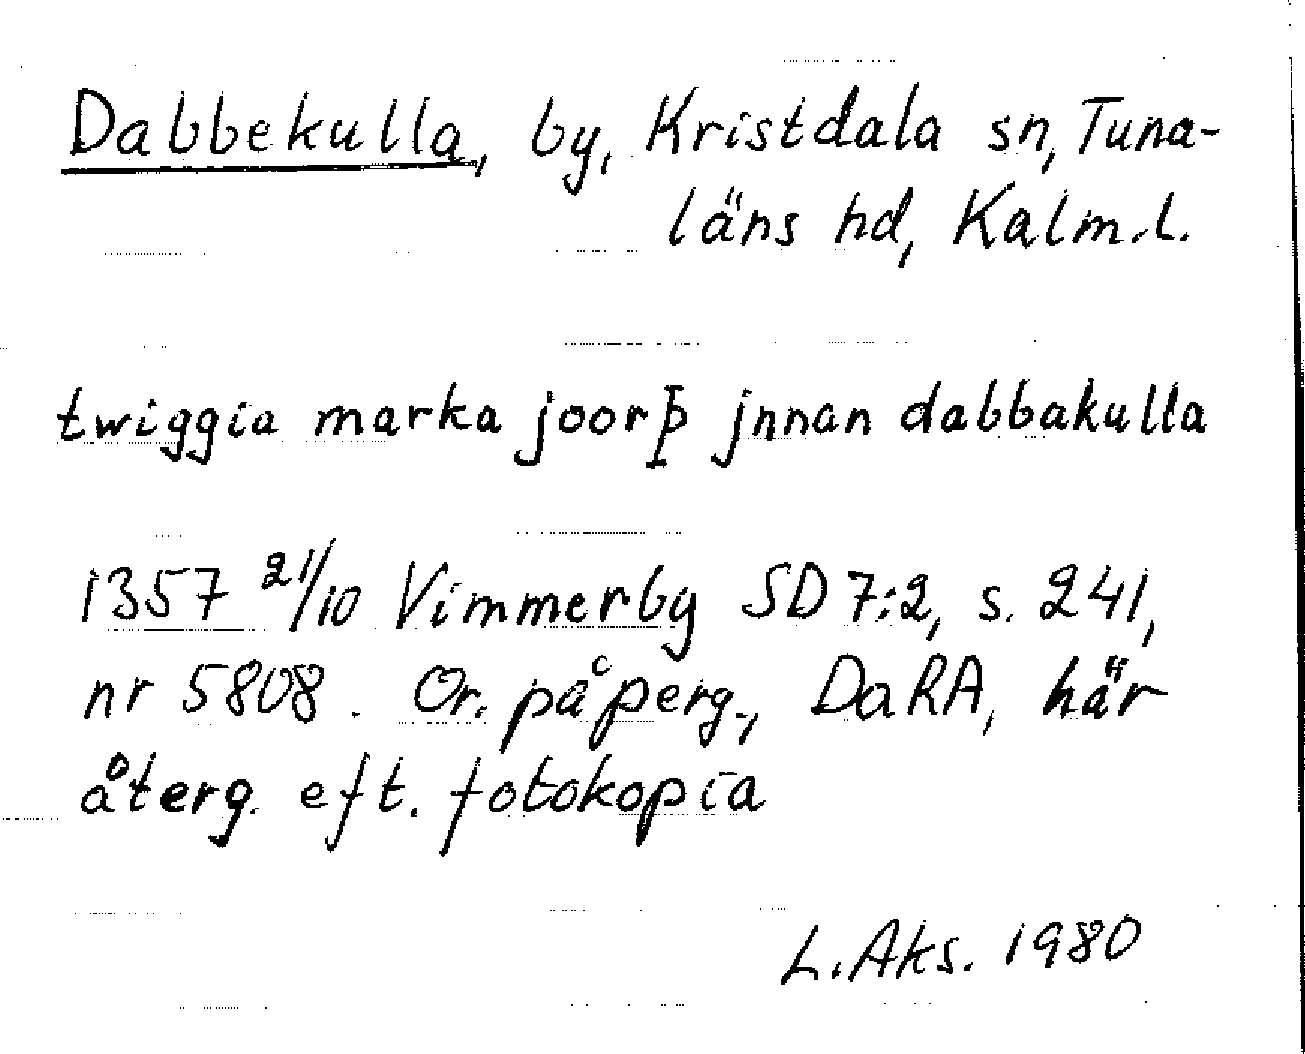 Dabbekulla, by, Kristdala sn, Tuna-
läns hd, Kalm.l.
twiggia marka joorþ jnnan dabbakulla
1357 21/10 Vimmerby SD 7:2, s. 241,
nr 5808. Or. på perg., DaRA, här
återg. eft. fotokopia
L.Aks. 1980